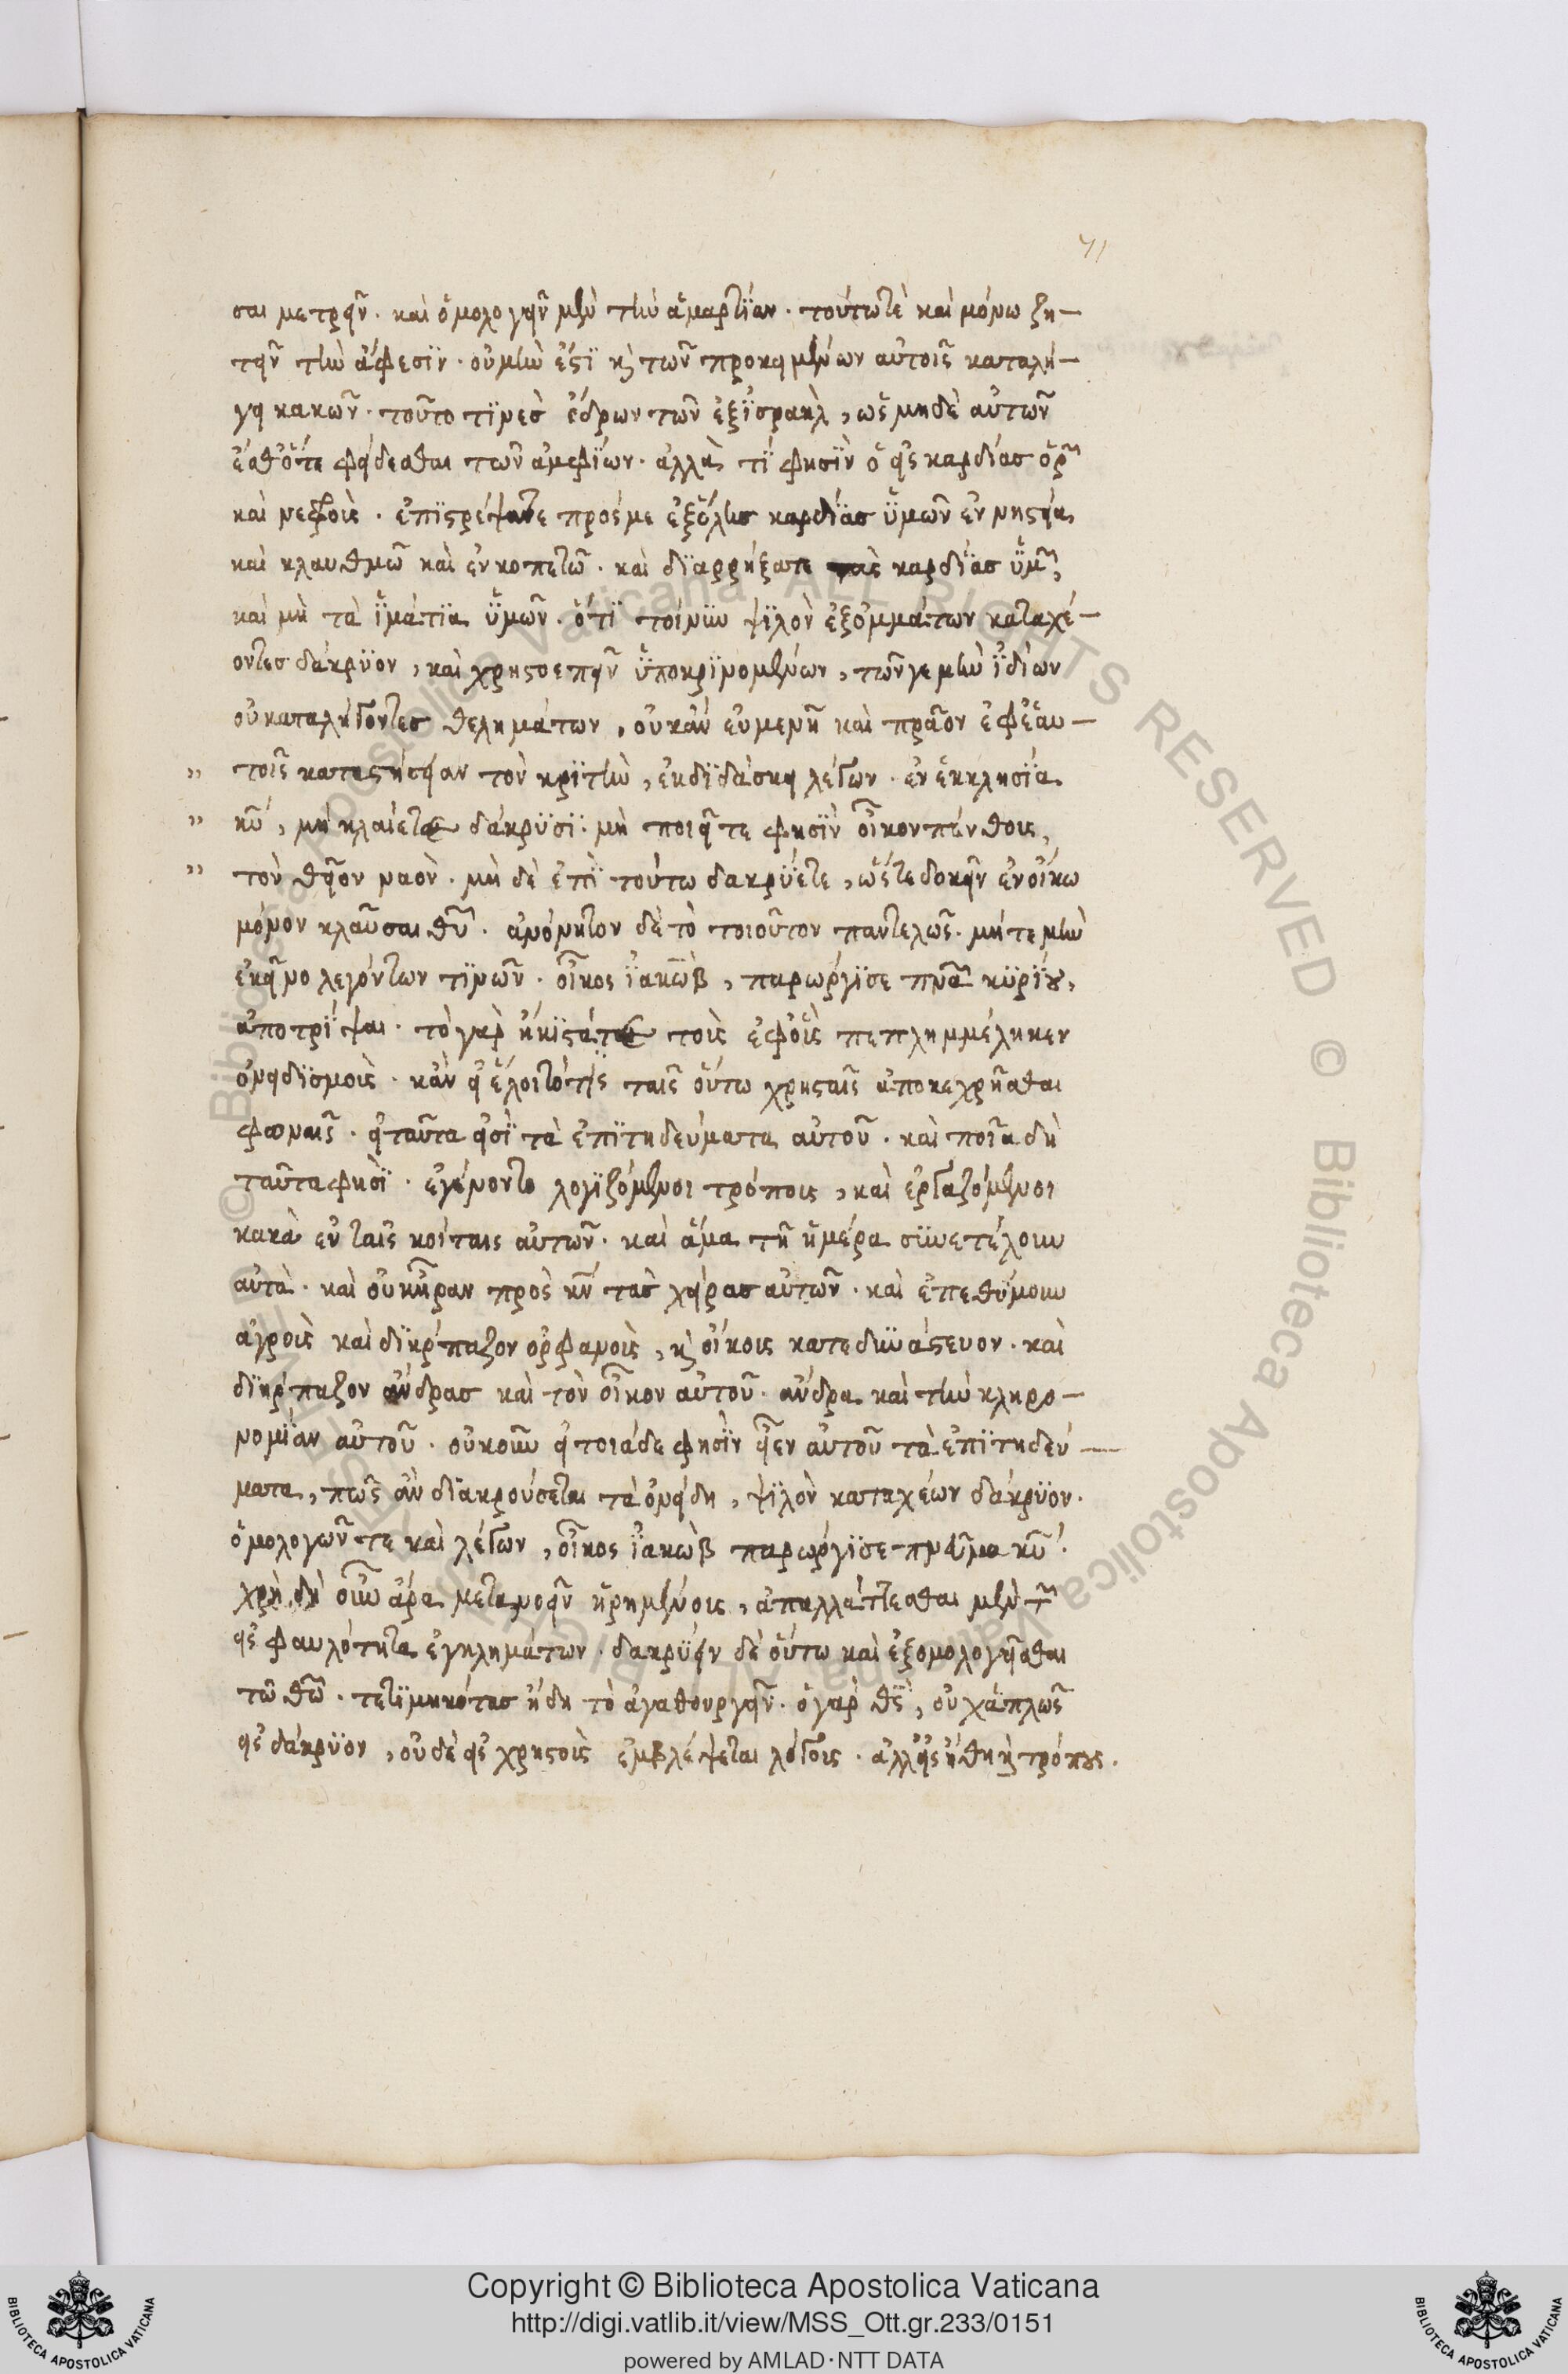 71
σαι μετρεῖν. καὶ ὁμολογεῖν μὲν τὴν ἁμαρτΐαν. τούτω τὲ καὶ μόνω ζη-
τεῖν τὴν ἄφεσϊν. οὐ μὴν ἐστϊ καὶ τῶν προκειμένων αὐτοῖς καταλή-
γει κακῶν. τοῦτο τϊνὲς ἔδρων τῶν ἐξ ϊσραὴλ, ὡς μηδὲ αὐτῶν
ἐσθότε φείδεσθαι τῶν ἀμφΐων. ἀλλὰ τί φησϊν ὁ εἰς καρδίας ὁρῶν
καὶ νεφροὺς. ἐπϊστρέψατε πρός με ἐξ ὅλης καρδΐας ὑμῶν ἐν νηστεία,
καὶ κλαυθμῶ καὶ ἐν κοπετῶ. καὶ δϊαρρήξατε τὰς καρδΐας ὑμῶν,
καὶ μὴ τὰ ϊμάτϊα ὑμῶν. ὅτϊ τοίνυν ψϊλὸν ἐξ ὀμμάτων καταχέ-
οντες δάκρϋον, καὶ χρηστοεπεῖν ὑποκρϊνομένων, τῶν γε μὴν ϊδίων
οὐ καταλήγοντες θελημάτων, οὐκ ἂν εὐμενῆ καὶ πρᾶον ἐφ ἑαυ-
" τοῖς καταστήσειαν τὸν κρϊτὴν, ἐκδϊδάσκει λέγων. ἐν ἐκκλησϊα
" κυ, μὴ κλαίετε δάκρϋσϊ. μὴ ποιεῖτε φησϊν οἶκον πένθους,
" τὸν θεῖον ναὸν. μὴ δὲ ἐπὶ τούτω δακρΰετε, ὥστε δοκεῖν ἐν οἴκω
μόνον κλαῦσαι θυ. ἀνόνητον δὲ τὸ τοιοῦτον παντελῶς. μήτε μὴν
ἐκεῖνο λεγόντων τϊνῶν. οἶκος ϊακὼβ, παρώργϊσε πνα κϋρΐου,
ἀποτρίψαι. τὸ γὰρ ἥκϊστά τε τοὺς ἐφ οἷς πεπλημμέληκεν
ὀνειδϊσμοὺς. κἂν εἰ ἕλοιτό τϊς ταῖς οὕτω χρησταῖς ἀποκεχρῆσθαι
φωναῖς. εἰ ταῦτα εἰσϊ τὰ ἐπϊτηδεύματα αὐτοῦ. καὶ ποῖα δὴ
ταῦτα φησϊ. ἐγένοντο λογϊζόμενοι τρόπους, καὶ ἐργαζόμενοι
κακὰ ἐν ταῖς κοίταις αὐτῶν. καὶ ἅμα τῆ ἡμέρα συνετέλουν
αὐτὰ. καὶ οὐκ ἦραν πρὸς κν τὰς χεῖρας αὐτῶν. καὶ ἐπεθύμουν
ἀγροὺς καὶ δϊήρπαζον ὀρφανοὺς, καὶ οἴκους κατεδυνάστευον. καὶ
δϊήρπαζον ἄνδρας καὶ τὸν οἶκον αὐτοῦ. ἄνδρα καὶ τὴν κληρο-
νομϊαν αὐτοῦ. οὐκοῦν εἰ τοιάδε φησϊν εἶεν αὐτοῦ τὰ ἐπϊτηδεύ-
ματα, πῶς ἂν δϊακρούσεται τὰ ὀνείδη, ψϊλὸν καταχέων δάκρϋον.
ὁμολογῶν τε καὶ λέγων, οἶκος ϊακὼβ παρώργϊσε πνεῦμα κυ.
χρὴ δὴ οὖν ἄρα μετανοεῖν ἡρημένους, ἀπαλλάττεσθαι μὲν τῶν
εἰς φαυλότητα ἐγκλημάτων. δακρϋειν δὲ οὕτω καὶ ἐξομολογεῖσθαι
τῶ θω. τετϊμηκότας ἤδη τὸ ἀγαθουργεῖν. ὁ γὰρ θς, οὐχ ἁπλῶς
εἰς δάκρϋον, οὐδὲ εἰς χρηστοὺς ἐμβλέψεται λόγους. ἀλλ εἰς ἤθη καὶ τρόπους.
Copyright © Biblioteca Apostolica Vaticana
http://digi.vatlib.it/view/MSS_Ott.gr.233/0151
powered by AMLAD·NTT DATA